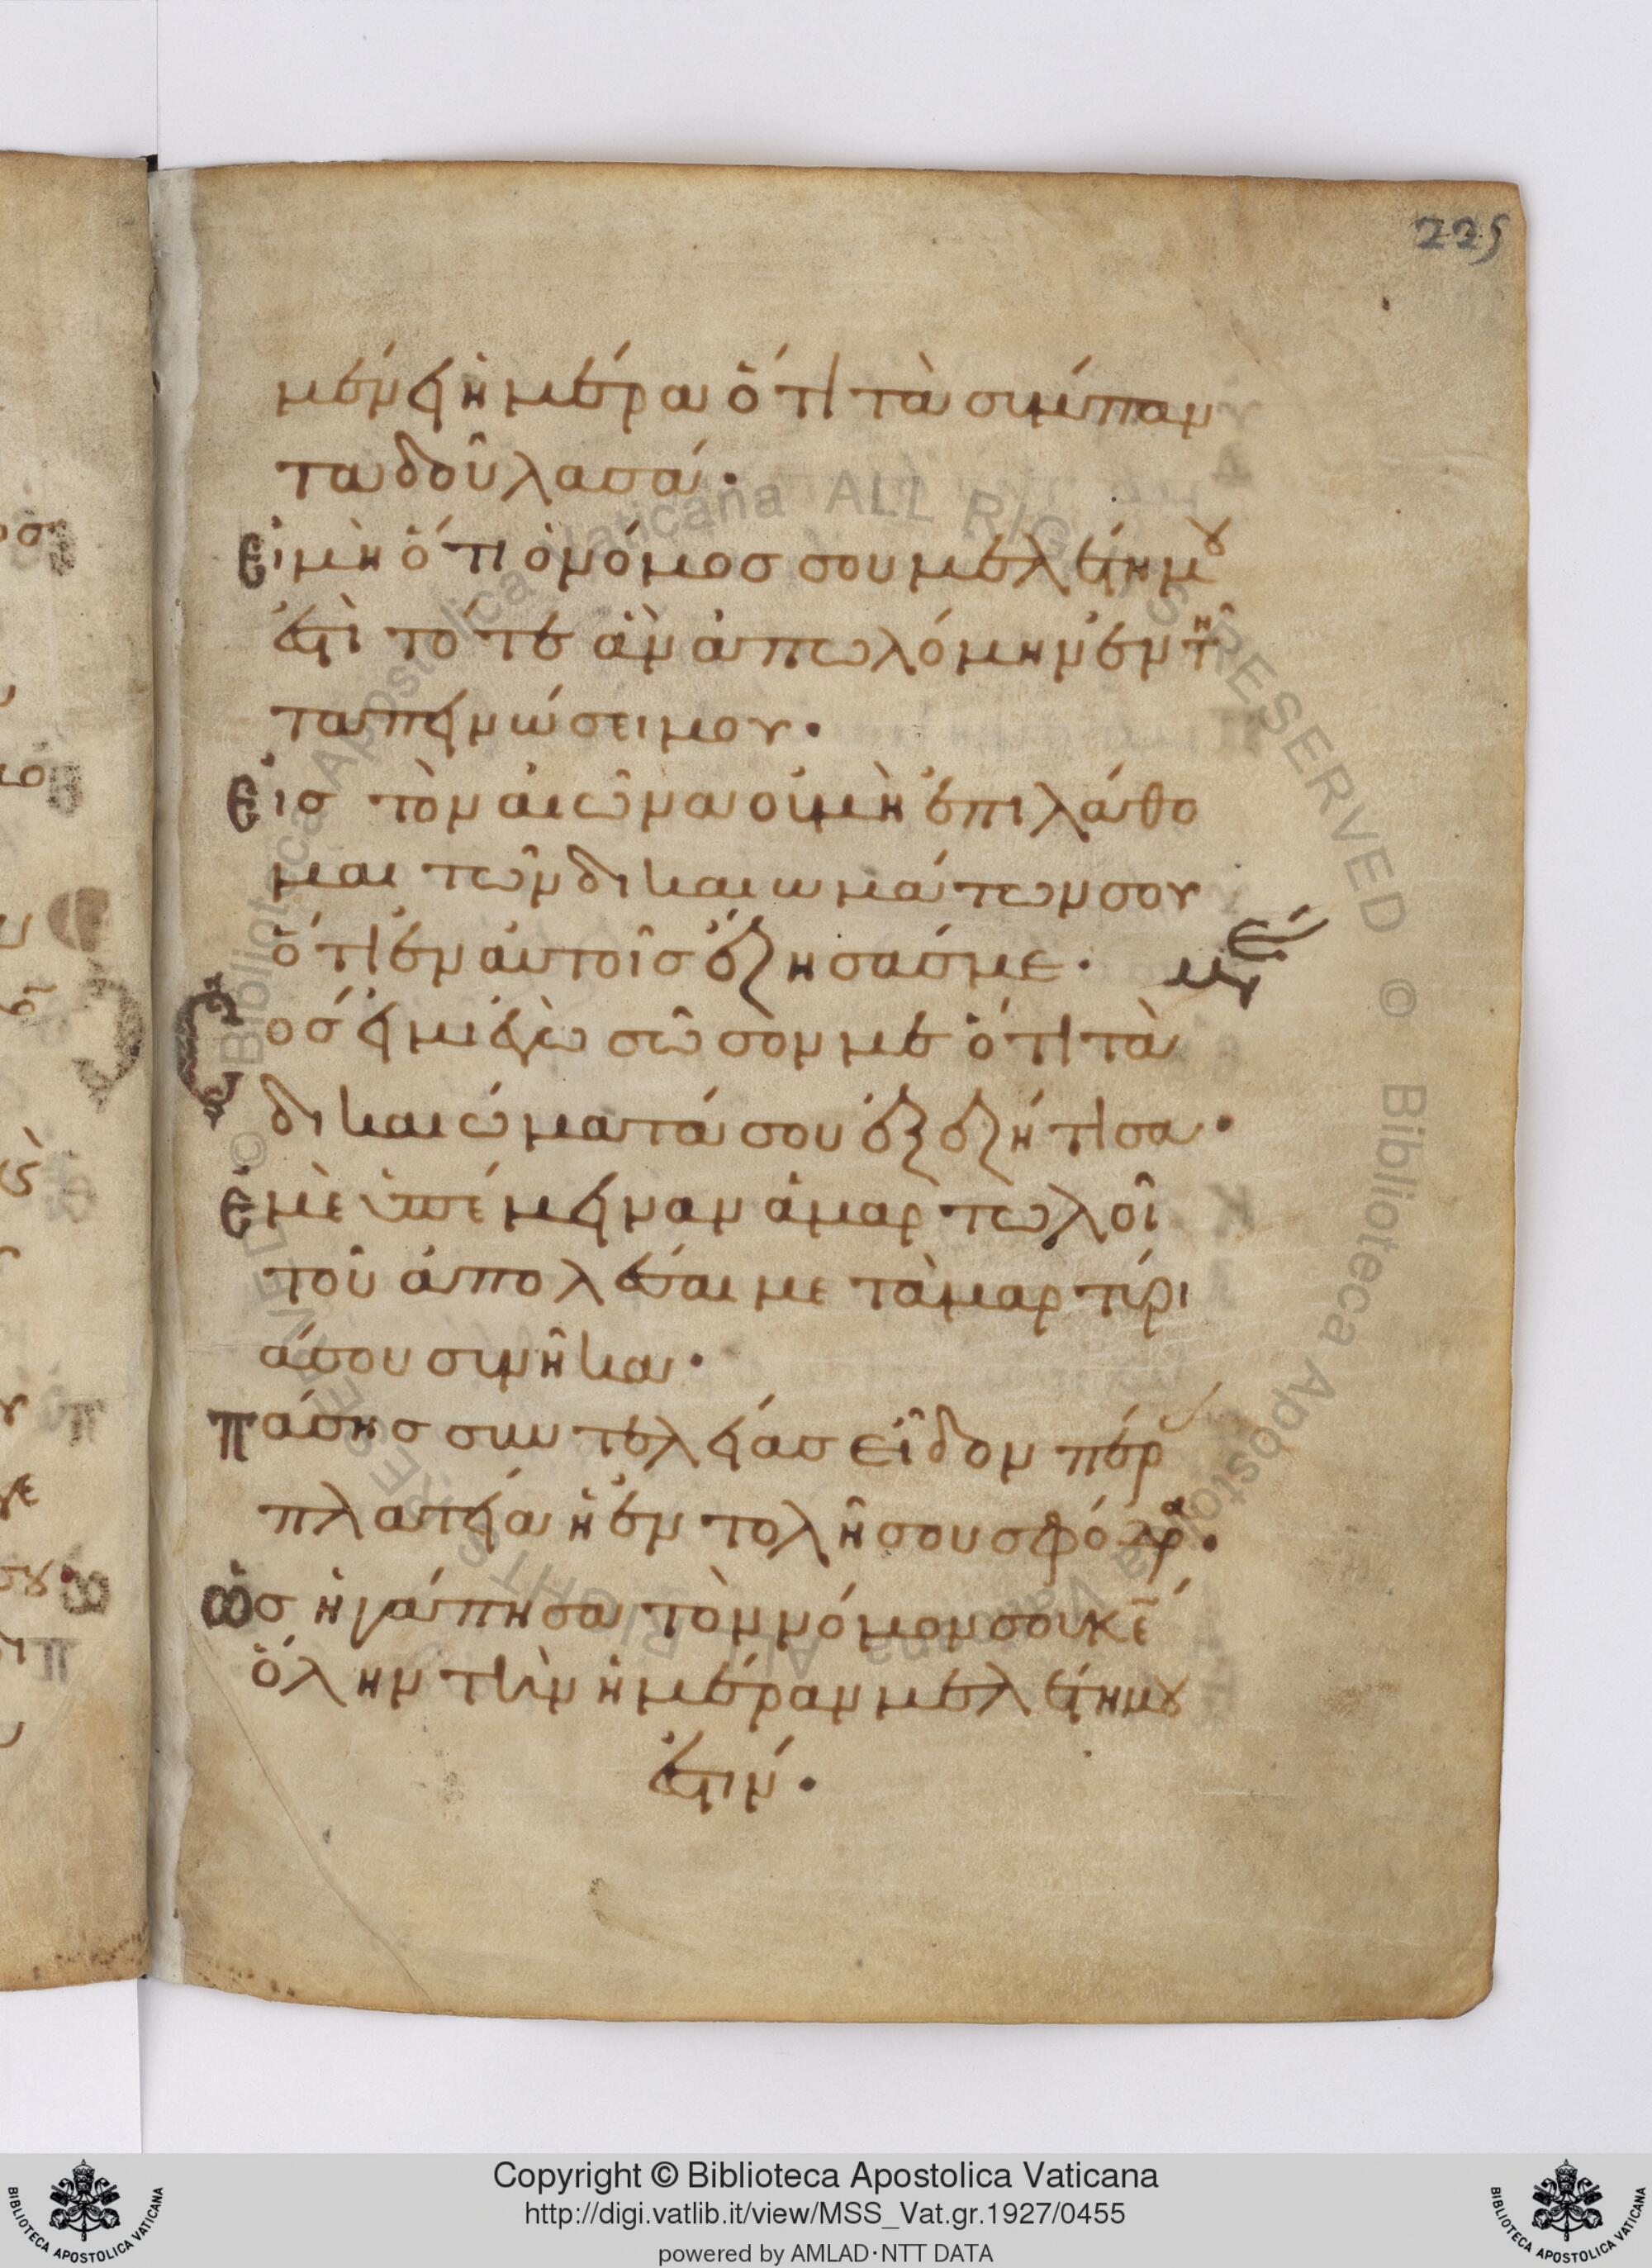 225
μένει ἡμέρα ὅτι τὰ σύμπαν
τα δοῦλα σά·
εἰ μὴ ὅτι ὁ νόμοσ σου μελέτη μου
ἐστὶ τότε ἂν ἀπωλόμην ἐν τῆ
ταπεινώσει μου·
εἰσ τὸν αἰῶνα οὐ μὴ ἐπιλάθο
μαι τῶν δικαιωμάτων σου
ὅτι ἐν αὐτοῖσ ἔζησάσ με·
Σοσ εἰμι ἐγὼ σῶσον με ὅτι τὰ
δικαιώματά σου ἐξεζήτισα·
ἐμὲ ὑπέμειναν ἁμαρτωλοὶ
τοῦ ἀπολέσαι με τὰ μαρτύρι
ά σου συνῆκα·
πάσησ συντελείασ εἶδον πέρ
πλατεία ἡ ἐντολή σου σφόδρα·
ὡσ ἠγάπησα τὸν νόμον σου κε̄
ὅλην τὴν ἡμέραν μελέτη μου
ἐστιν·
Copyright © Biblioteca Apostolica Vaticana
http://digi.vatlib.it/view/MSS_Vat.gr.1927/0455
powered by AMLAD·NTT DATA